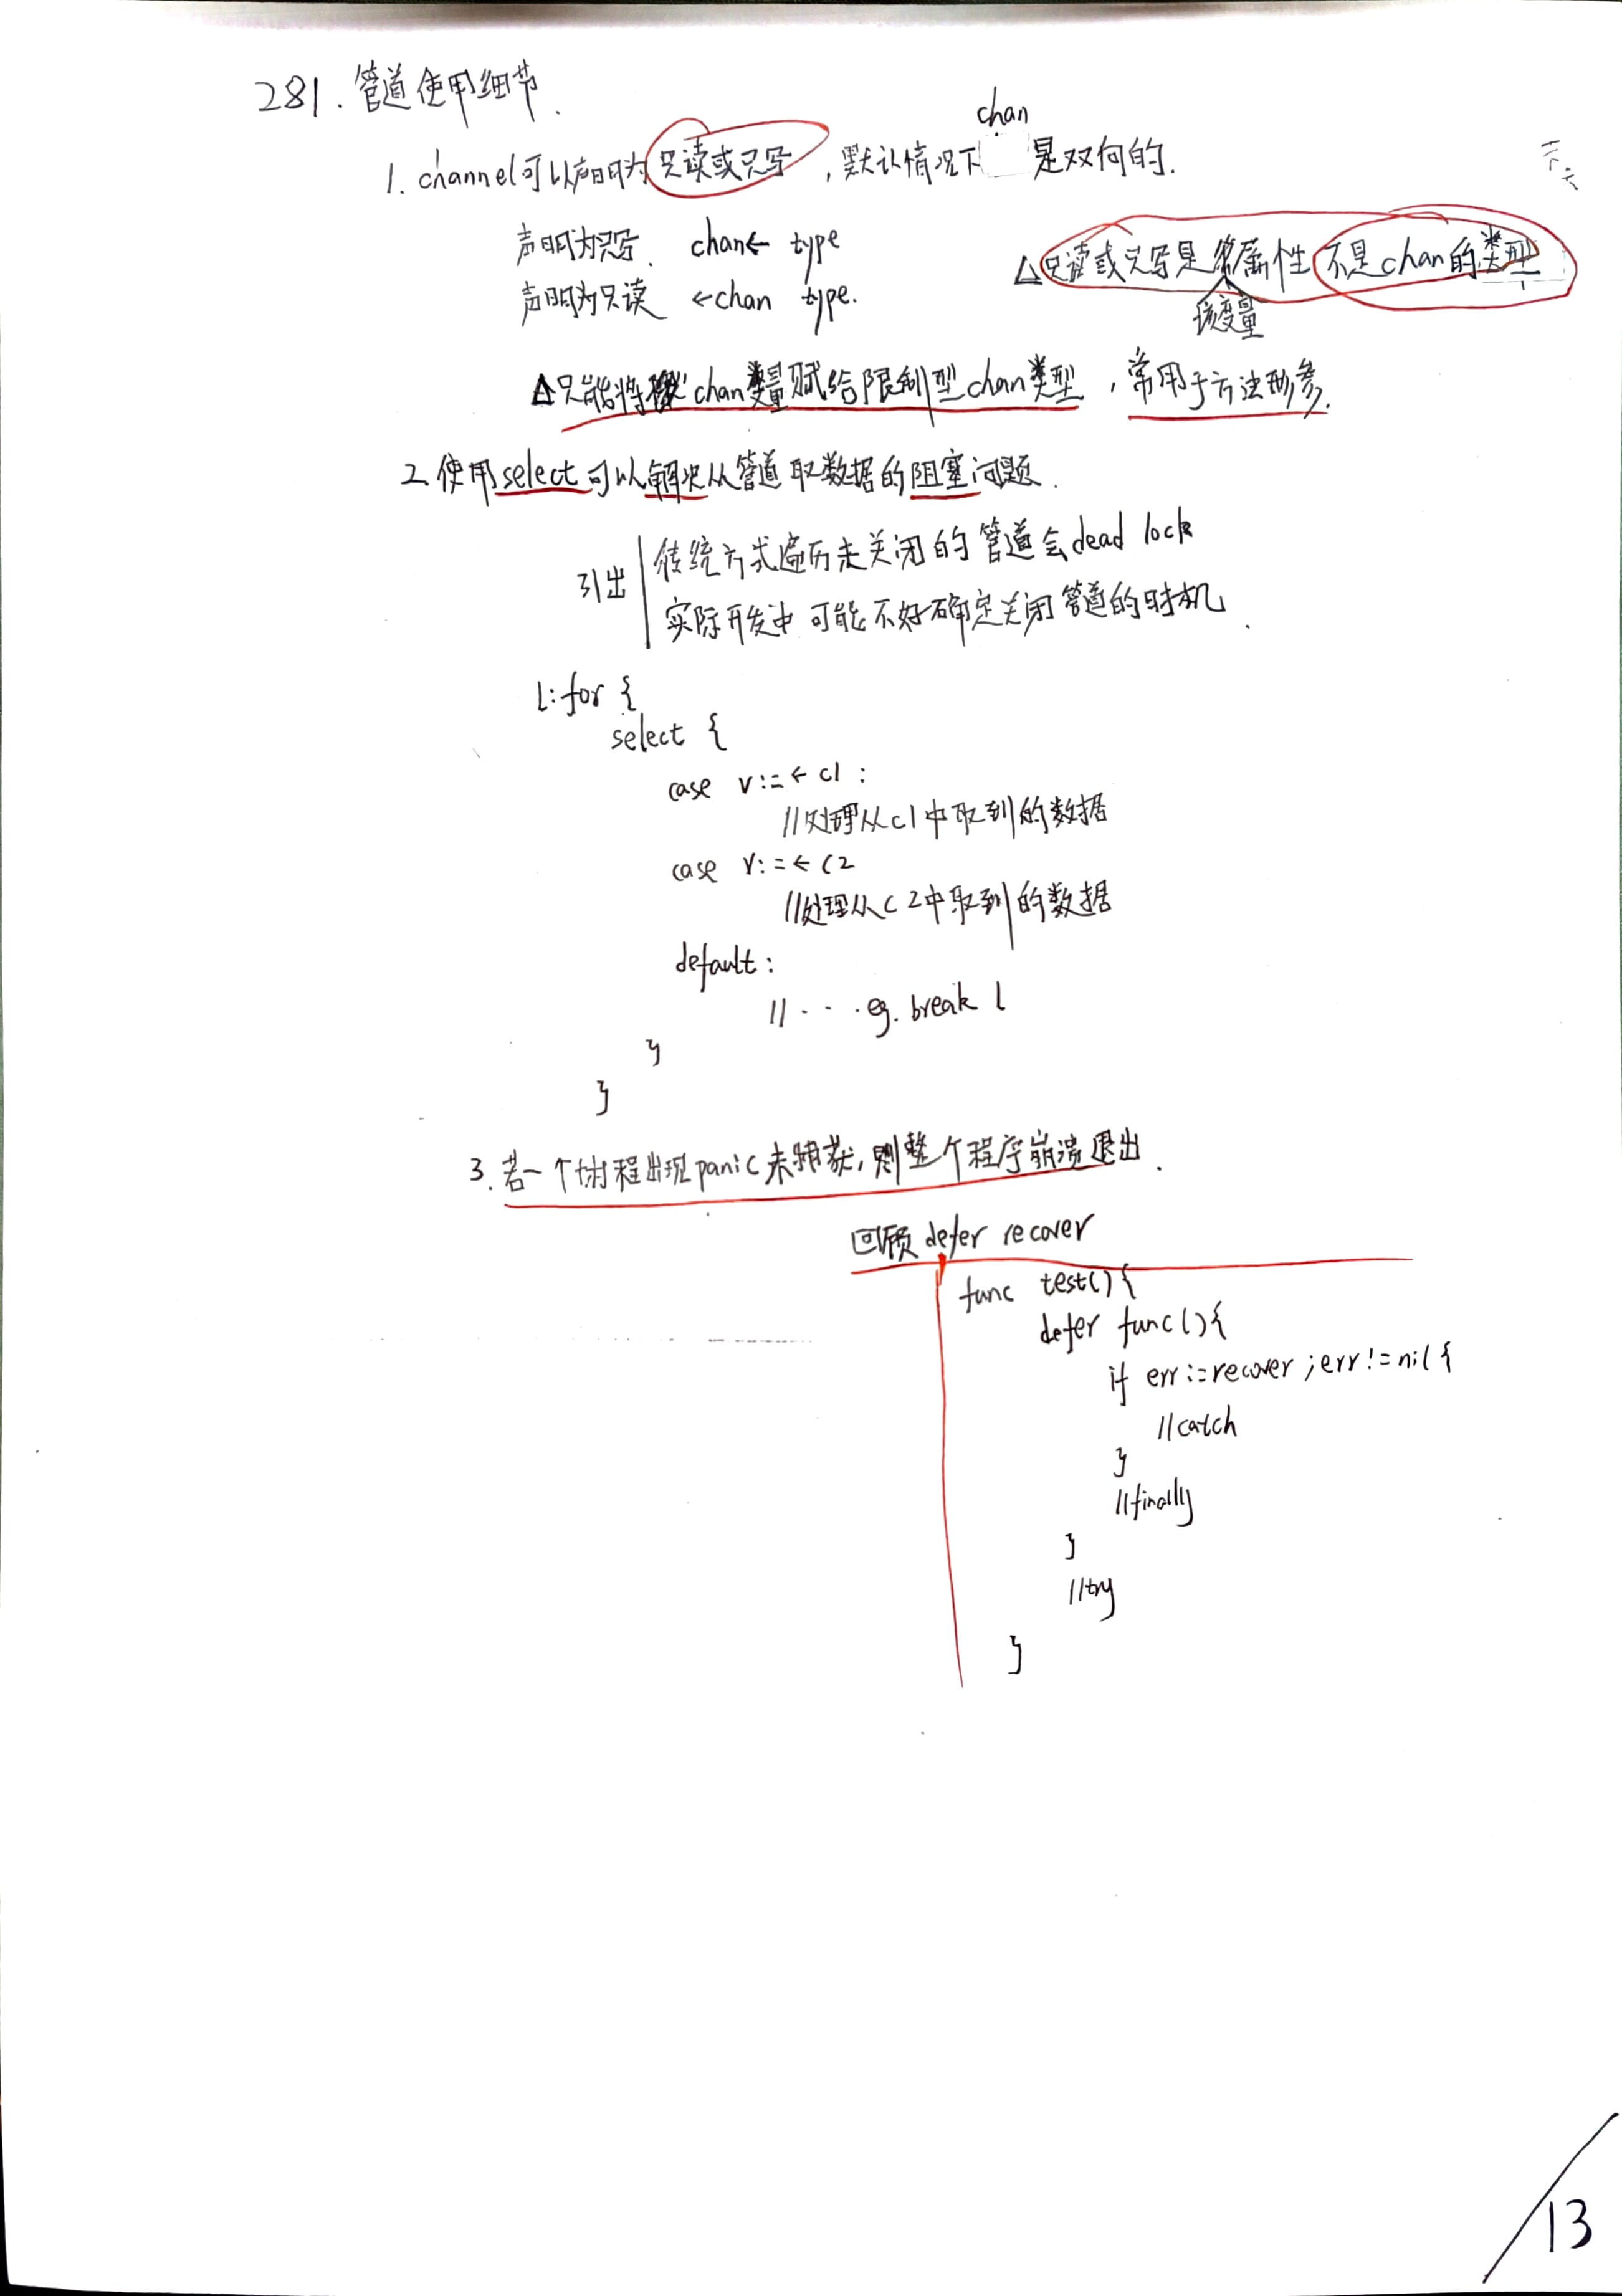 281. 管道使用细节.
1. channel可以声明为只读或只写, 默认情况下chan是双向的.
声明为只写. chan← type
声明为只读 ←chan type.
△只读或只写是该变量属性 不是chan的类型
△只能将chan变量赋给限制型chan类型, 常用于方法形参.
2. 使用select可以解决从管道取数据的阻塞问题.
引出
传统方式遍历未关闭的管道会dead lock
实际开发中可能不好确定关闭管道的时机.
l:for {
select {
case v:=← c1 :
//处理从c1中取到的数据
case v:=← c2
//处理从c2中取到的数据
default:
//....eg. break l
}
}
3. 若一个协程出现panic未捕获, 则整个程序崩溃退出.
回顾 defer recover
func test(){
defer func(){
if err:=recover ;err!=nil {
//catch
}
//finally
}
//try
}
13